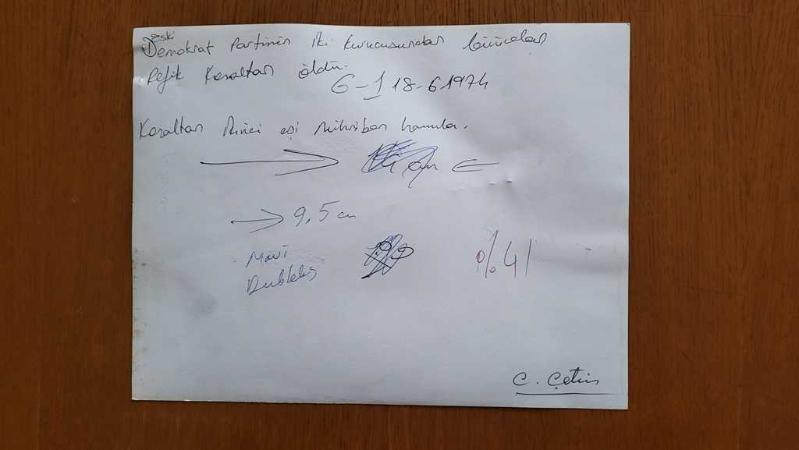 Eski
Demokrat Partinin iki kurucusundan
Refik Koraltan öldü.
6-1 18-6.1974
Koraltan ikinci eşi Mihriban hanımla.
→
→ 9,5 cm
Mavi
Dubleks
%41
C. Çetin